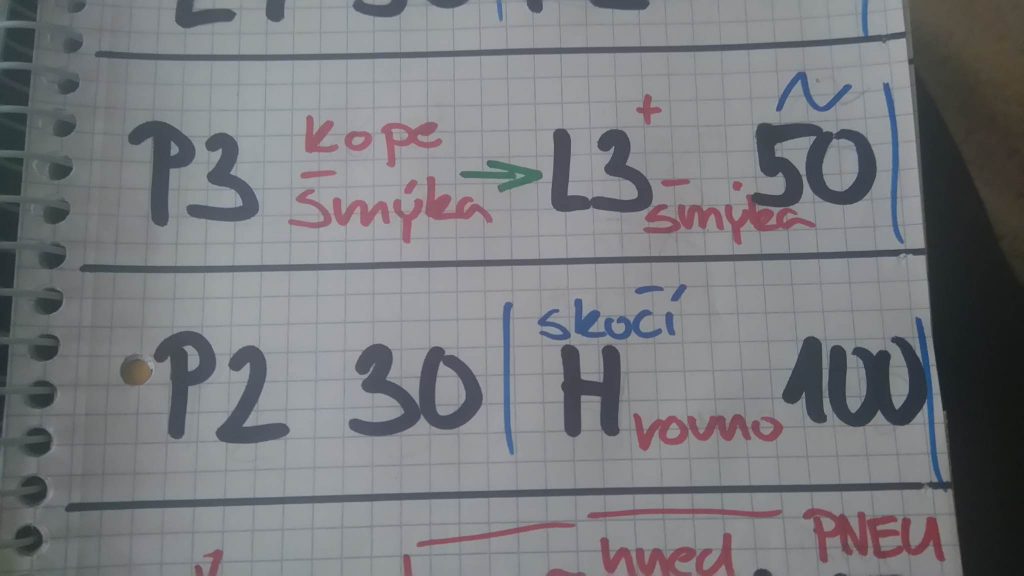 P3 kope šmýka → L3+ šmýka 50
P2 30 | skočí H rovno 100 |
hneď PNEU